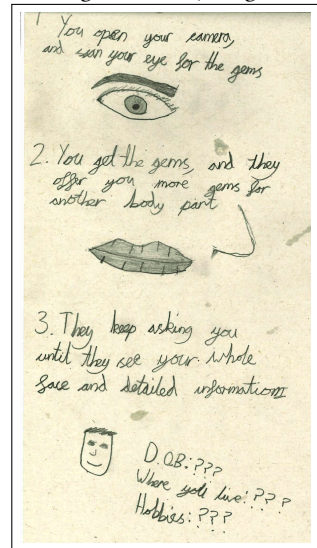 1. You open your camera,
and scan your eye for the gems
2. You get the gems, and they
offer you more gems for
another body part
3. They keep asking you
until they see your whole
face and detailed information
D.O.B: ???
Where you live: ???
Hobbies: ???